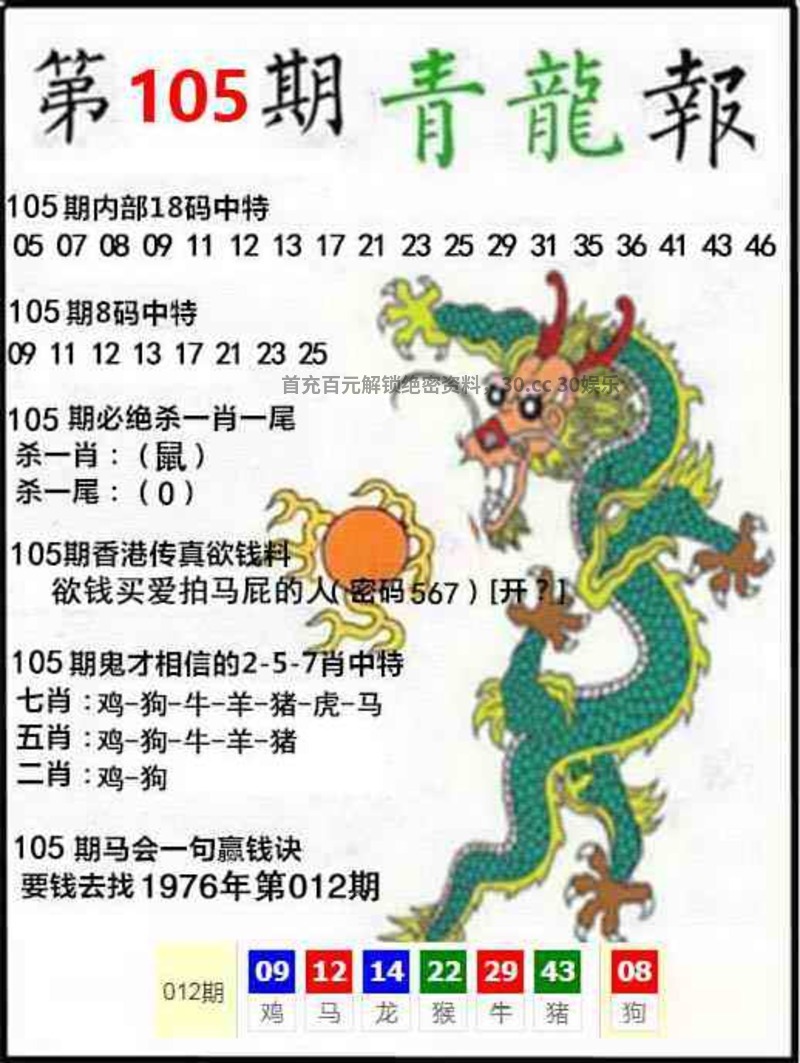 第105期青龍報
105期内部18码中特
05 07 08 09 11 12 13 17 21 23 25 29 31 35 36 41 43 46
105期8码中特
09 11 12 13 17 21 23 25
首充百元解锁绝密资料，30.cc 30娱乐
105 期必绝杀一肖一尾
杀一肖：（鼠）
杀一尾：（0）
105期香港传真欲钱料
欲钱买爱拍马屁的人( 密码567 ) [开？]
105期鬼才相信的2-5-7肖中特
七肖：鸡-狗-牛-羊-猪-虎-马
五肖：鸡-狗-牛-羊-猪
二肖：鸡-狗
105 期马会一句赢钱诀
要钱去找1976年第012期
012期 09 12 14 22 29 43 08
鸡 马 龙 猴 牛 猪 狗